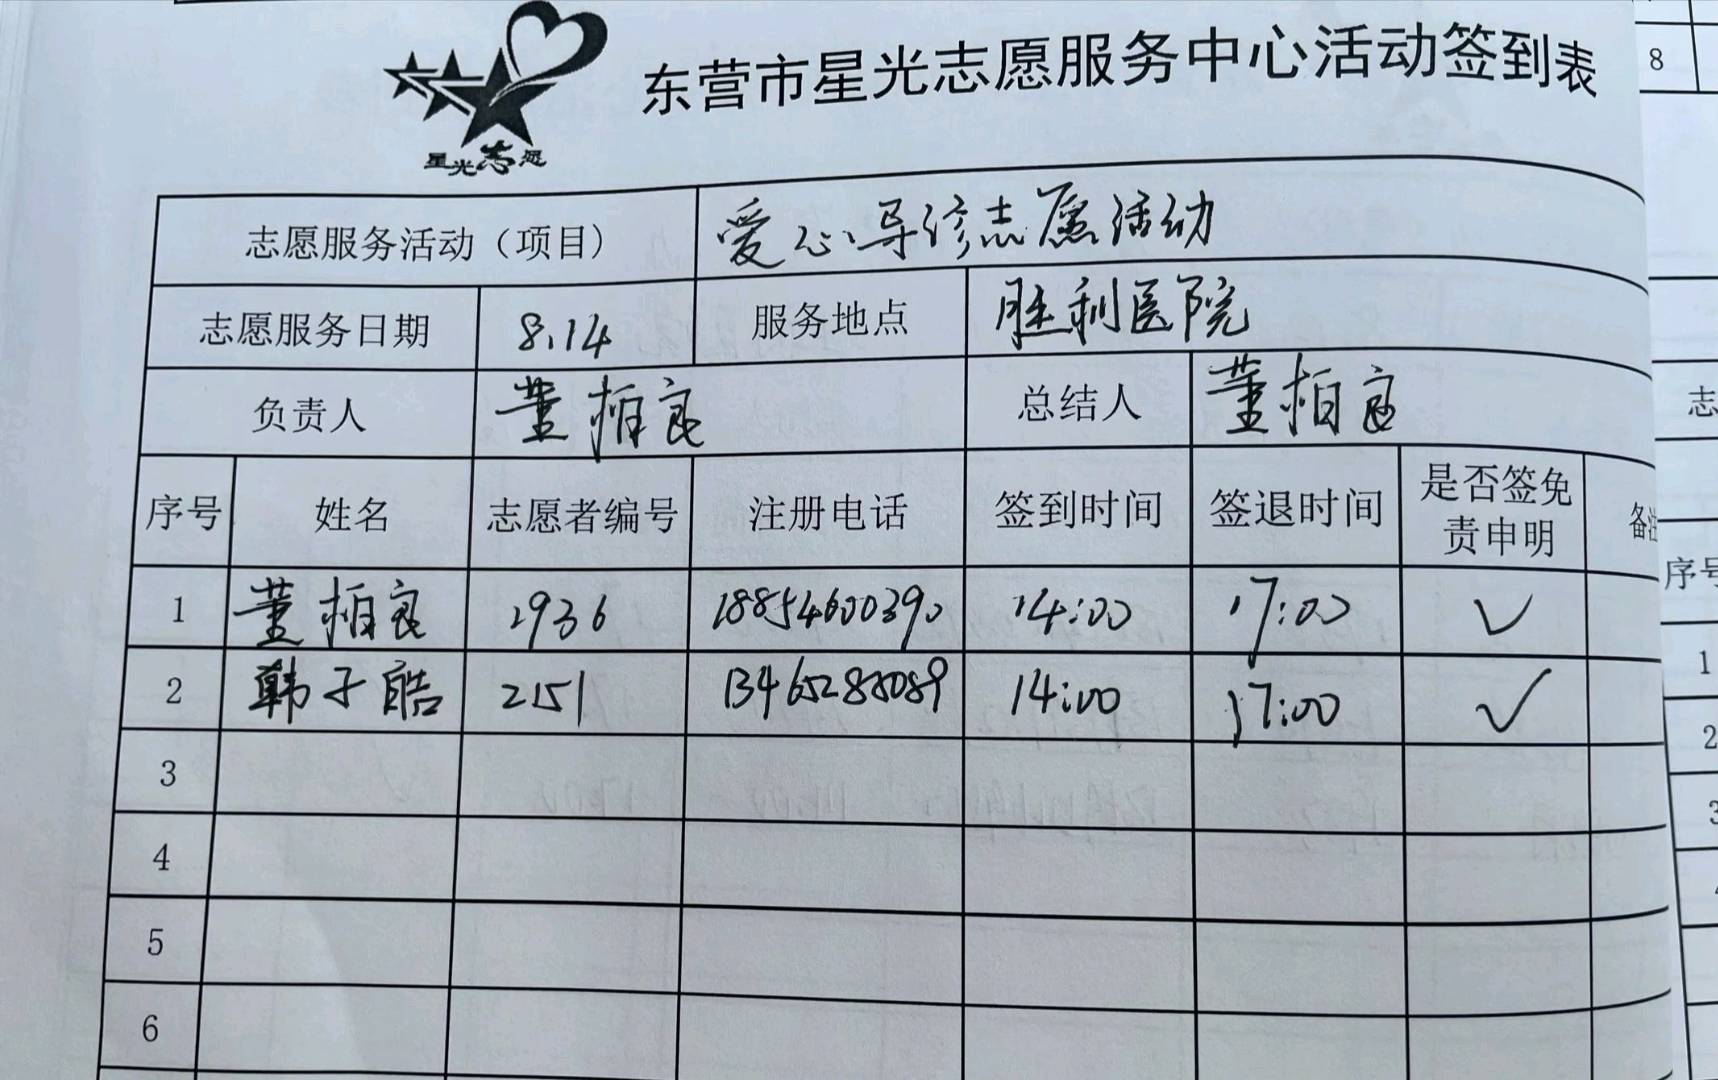 东营市星光志愿服务中心活动签到表
8
星光志愿
志愿服务活动（项目） 爱心导诊志愿活动
志愿服务日期 8.14 服务地点 胜利医院
负责人 董柏良 总结人 董柏良
志
序号 姓名 志愿者编号 注册电话 签到时间 签退时间 是否签免责申明 备注
序号
1 董柏良 1936 18854600390 14:00 17:00 ✓
1
2 韩子皓 2151 14:00 17:00 ✓
2
3
3
4
5
6